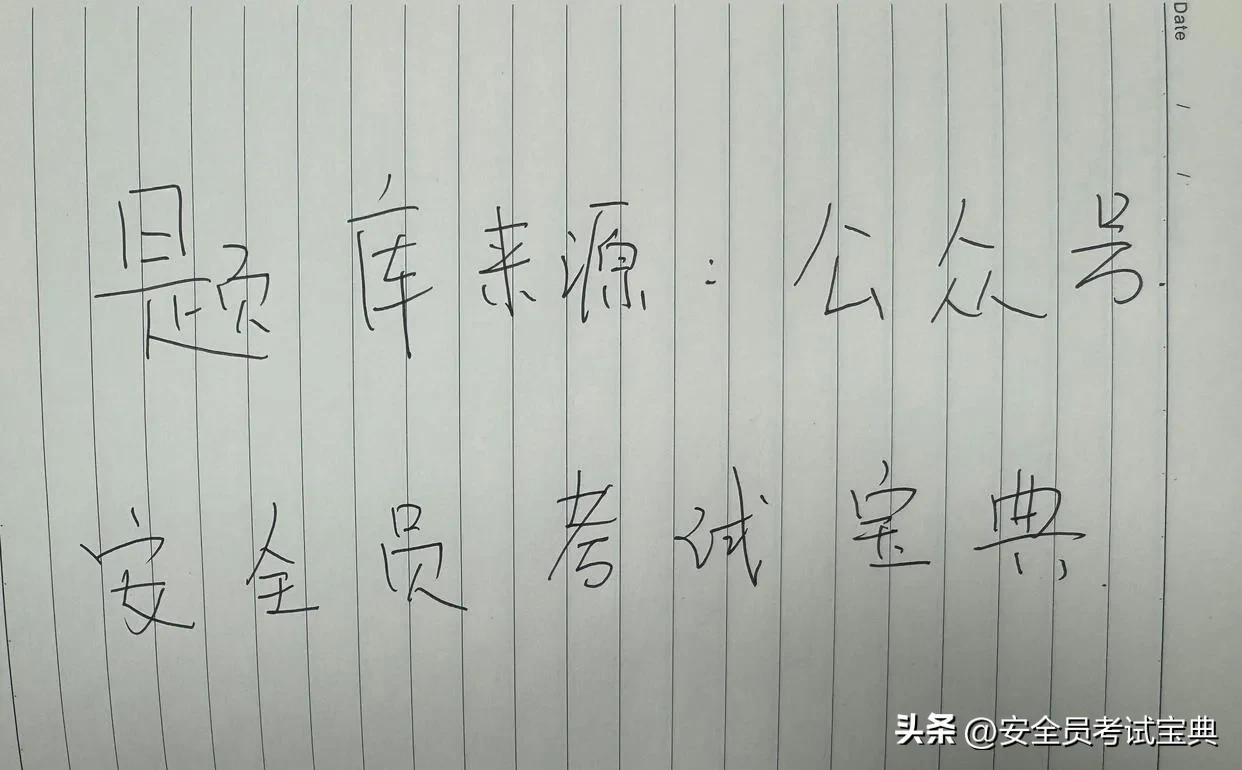 Date / /
题库来源：公众号
安全员考试宝典
头条 @安全员考试宝典